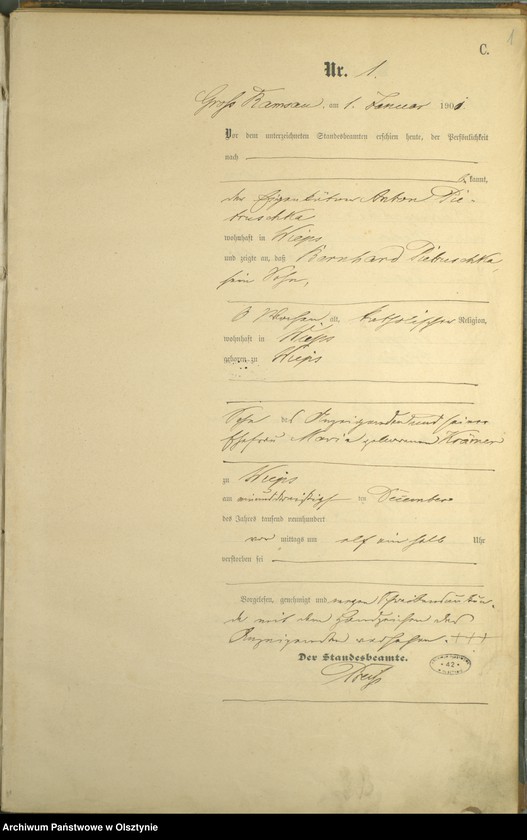 1
C.
Nr. 1.
Gross Ramsau, am 1. Januar 1901
Vor dem unterzeichneten Standesbeamten erschien heute, der Persönlichkeit
nach
kannt,
der Eigenkätner Anton Pie-
truschka
wohnhaft in Wieps
und zeigte an, daß Bernhard Pietruschka,
sein Sohn,
Wochen alt, katholischer Religion,
wohnhaft in Wieps
geboren zu Wieps
Sohn des Anzeigenden und seiner
Ehefrau Maria geborenen Krämer
zu Wieps
am einunddreißigsten December
des Jahres tausend neunhundert
vor mittags um elf ein halb Uhr
verstorben sei
Vorgelesen, genehmigt und wegen Schreibensunkun-
de mit dem Handzeichen des
Anzeigenden versehen. +++
Der Standesbeamte.
42
Archiwum Państwowe w Olsztynie